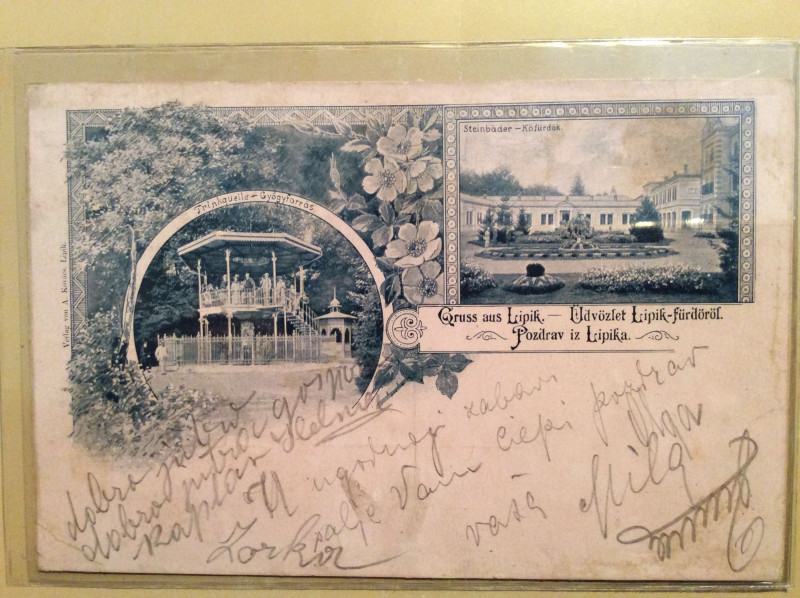 Trinkquelle – Gyógyforrás
Steinbäder – Kőfürdők
Verlag von A. Kovács, Lipik.
Gruss aus Lipik. — Üdvözlet Lipik-fürdőről.
Pozdrav iz Lipika.
dobro jutro
dobro jutro gospo
kaplar
U ugodnoj zabavi
šalje Vam ciepi pozdrav
vaša Mila
Olga
Zorka